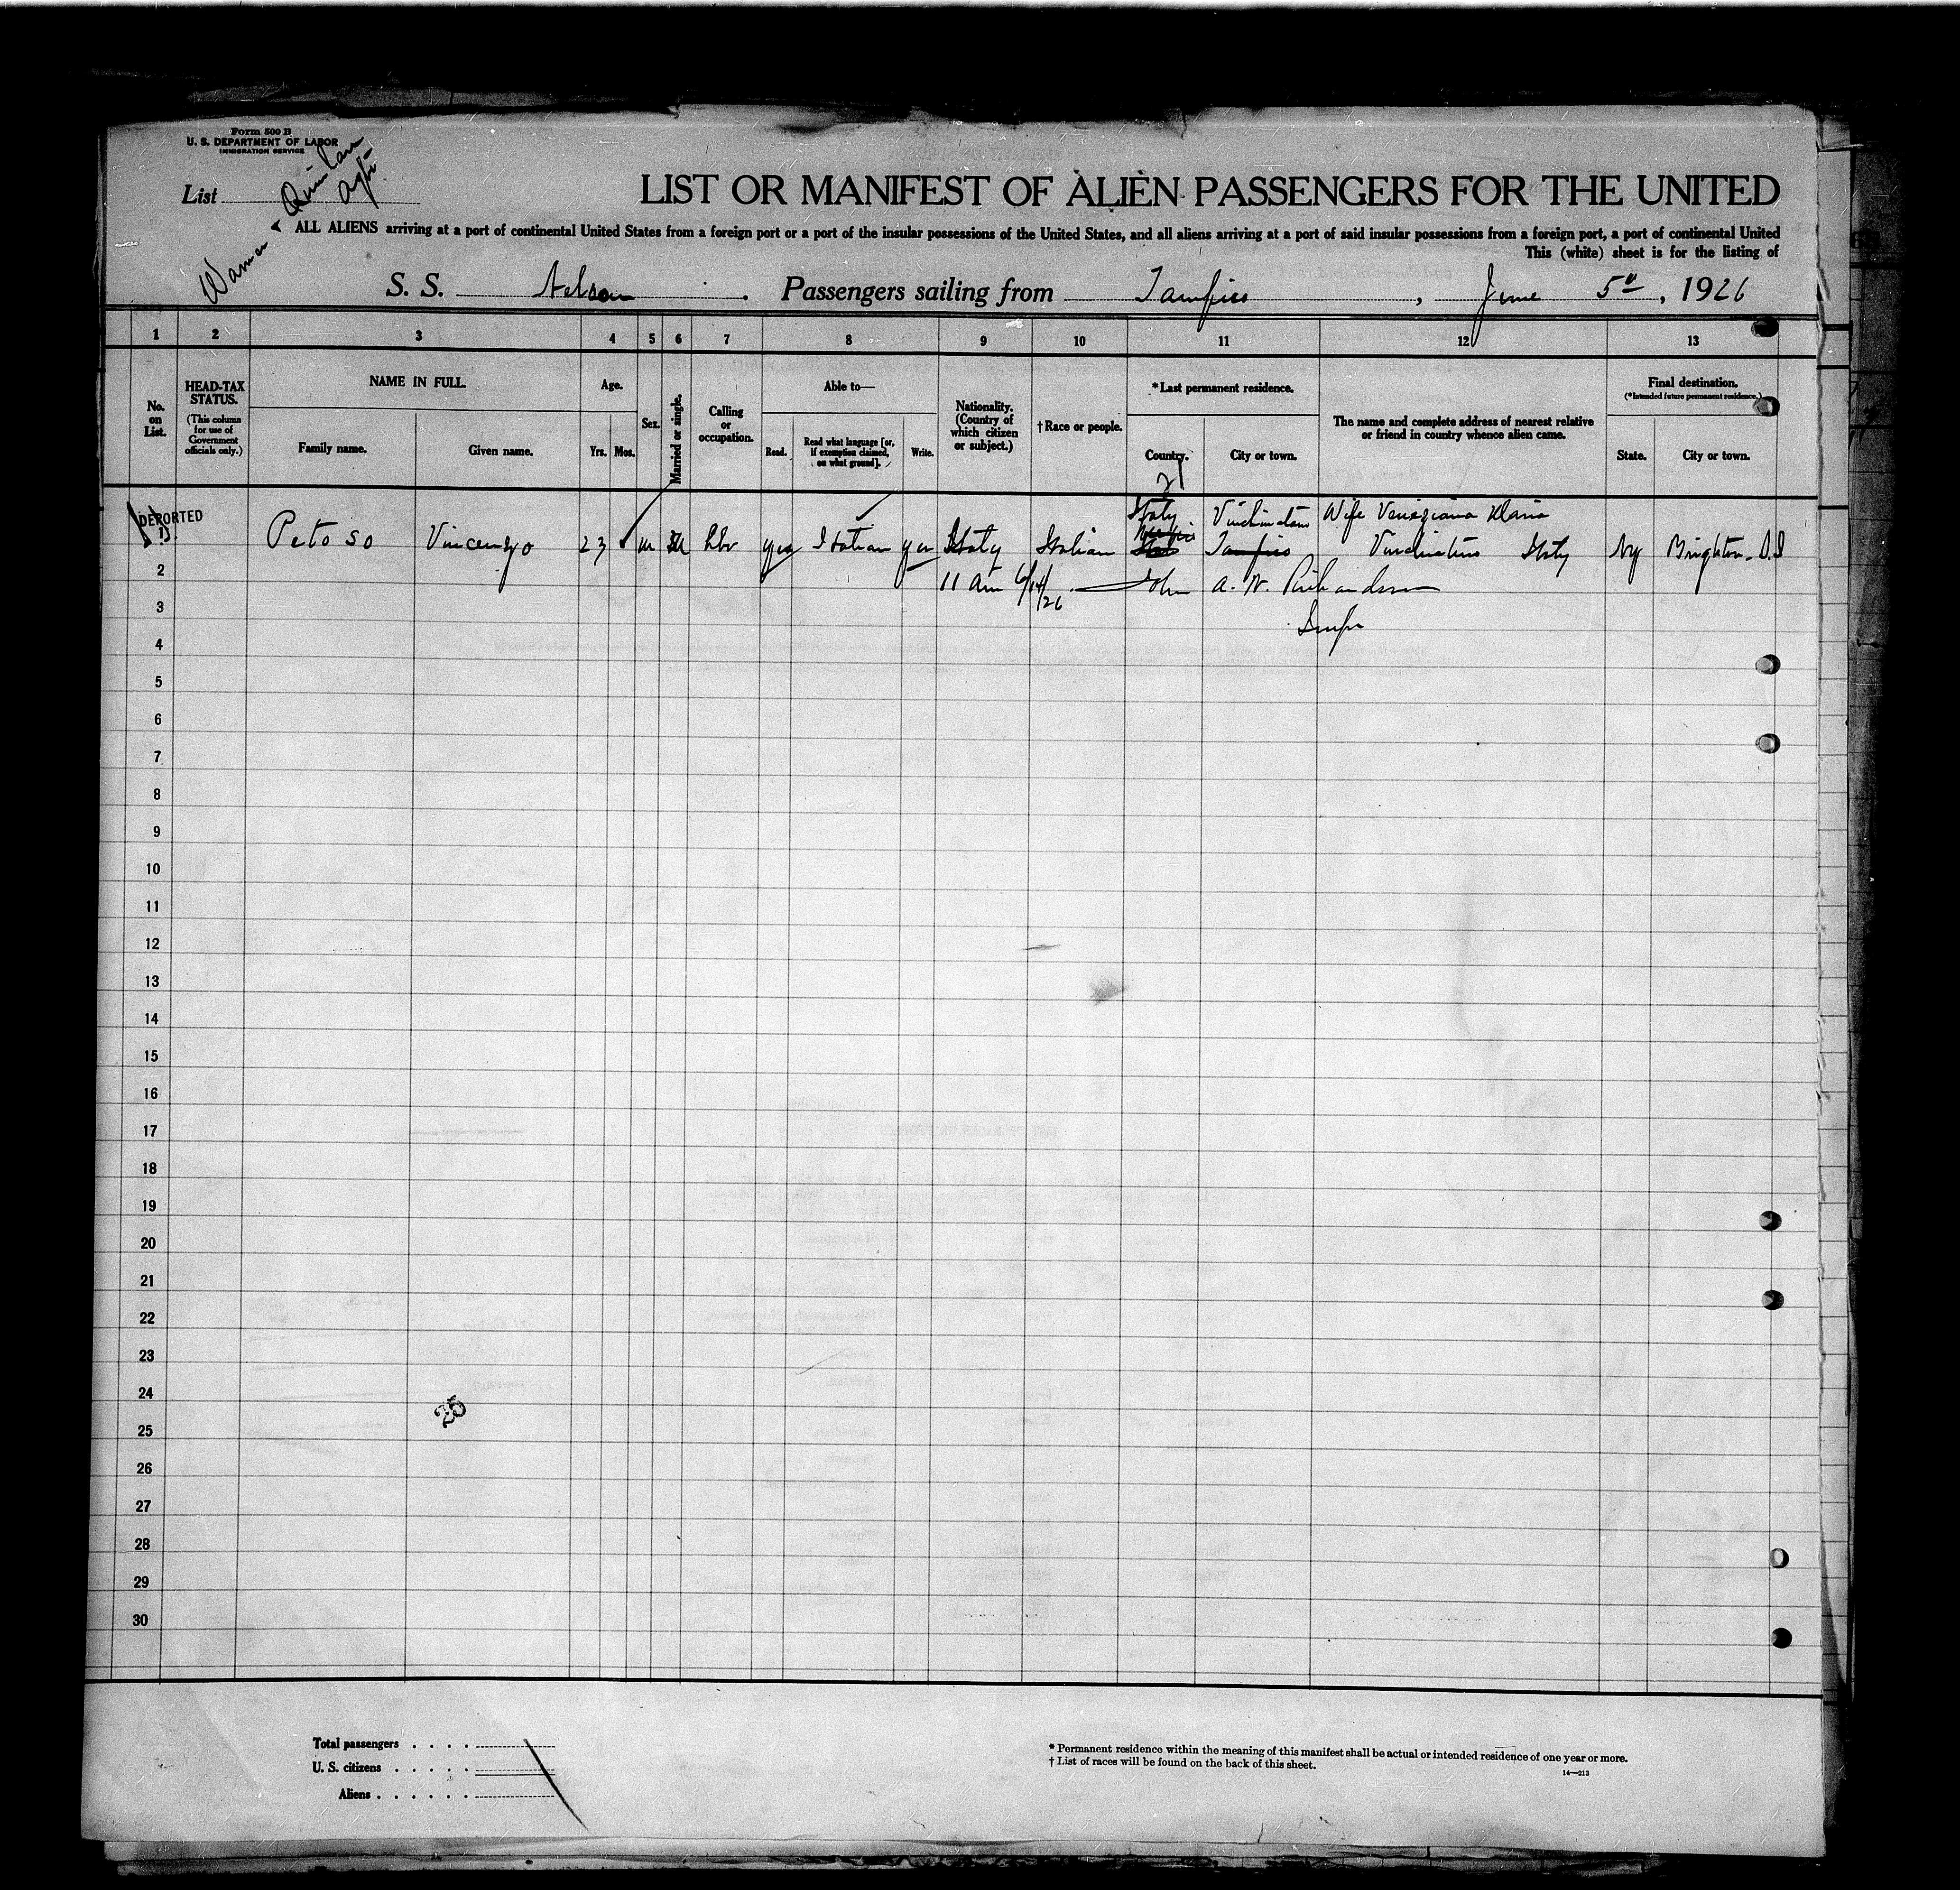 Form 500 B
U. S. DEPARTMENT OF LABOR
IMMIGRATION SERVICE
List
LIST OR MANIFEST OF ALIEN PASSENGERS FOR THE UNITED
ALL ALIENS arriving at a port of continental United States from a foreign port or a port of the insular possessions of the United States, and all aliens arriving at a port of said insular possessions from a foreign port, a port of continental United
This (white) sheet is for the listing of
S. S. Nelson. Passengers sailing from Tampico, June 5th, 1926
1 2 3 4 5 6 7 8 9 10 11 12 13
No. on List.
HEAD-TAX STATUS.
(This column for use of Government officials only.)
NAME IN FULL.
Family name. Given name.
Age.
Yrs. Mos.
Sex.
Married or single.
Calling or occupation.
Able to—
Read. Read what language [or, if exemption claimed, on what ground]. Write.
Nationality. (Country of which citizen or subject.)
†Race or people.
*Last permanent residence.
Country. City or town.
21
The name and complete address of nearest relative or friend in country whence alien came.
Final destination.
(*Intended future permanent residence.)
State. City or town.
DEPORTED
Italy Wife Veneziana Maria
1 Petoso Vincenzo 23 m M lbr yes Italian yes Italy Italian Tampico Italy Ny Brighton
2 11 am 6/14/26 John A. W. Richardson
3 Inspr
4
5
6
7
8
9
10
11
12
13
14
15
16
17
18
19
20
21
22
23
24
25
25
26
27
28
29
30
Total passengers . . . .
U. S. citizens . . . . .
Aliens . . . . . .
* Permanent residence within the meaning of this manifest shall be actual or intended residence of one year or more.
† List of races will be found on the back of this sheet.
14—213